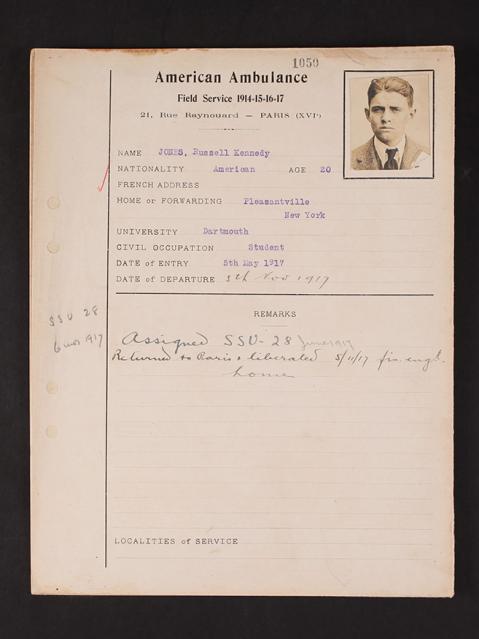 1050
American Ambulance
Field Service 1914-15-16-17
21, Rue Raynouard — PARIS (XVIe)
NAME JONES, Russell Kennedy
NATIONALITY American AGE 20
FRENCH ADDRESS
HOME OR FORWARDING Pleasantville
New York
UNIVERSITY Dartmouth
CIVIL OCCUPATION Student
DATE of ENTRY 5th May 1917
DATE of DEPARTURE 5th Nov 1917
REMARKS
SSU 28
6 mos 1917
Assigned SSU-28 June 1917
Returned to Paris & liberated 5/11/17 fin. engt.
home
LOCALITIES of SERVICE